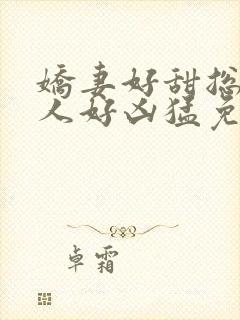 嬌妻好甜摠
人好凶猛免
卓霜